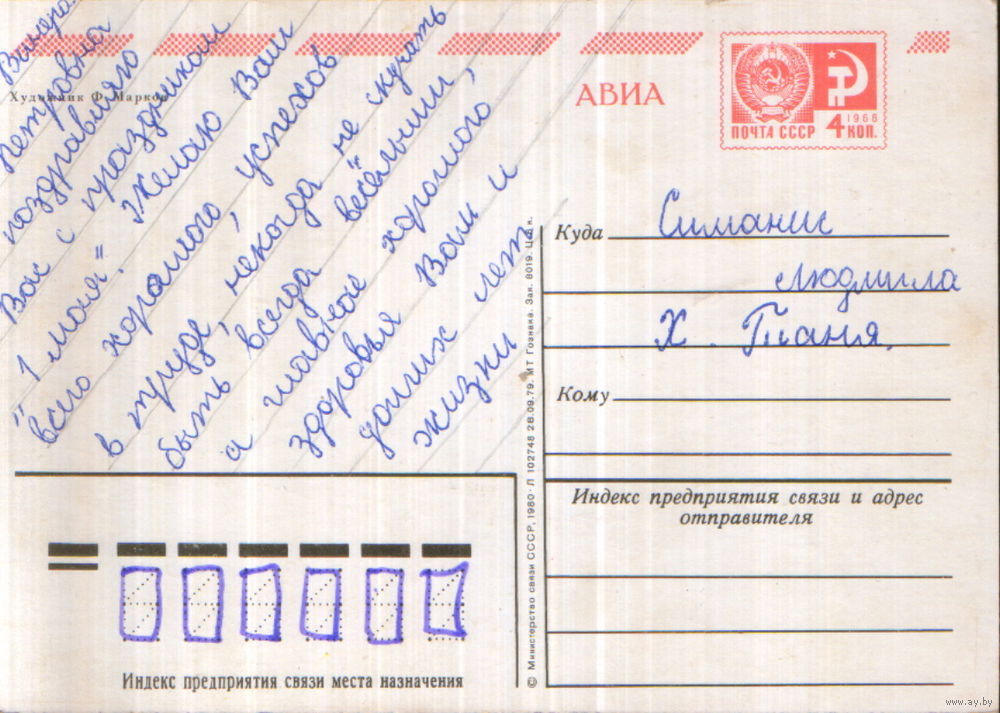 Валера
Петровна
поздравляю
Вас с праздником
"1 мая". Желаю Вам
всего хорошего, успехов
в труде, некогда не скучать
быть всегда весёлыми,
а главное хорошего
здоровья Вам и
долгих лет
жизни
Художник Ф. Марков
АВИА
ПОЧТА СССР
1966
4 КОП.
Куда Симанис
Людмила
Х. Таня.
Кому
Индекс предприятия связи и адрес
отправителя
Индекс предприятия связи места назначения
© Министерство связи СССР, 1980. Л 102748 28.09.79. МТ Гознака. Зак. 8019. Ц 5 к.
www.ay.by